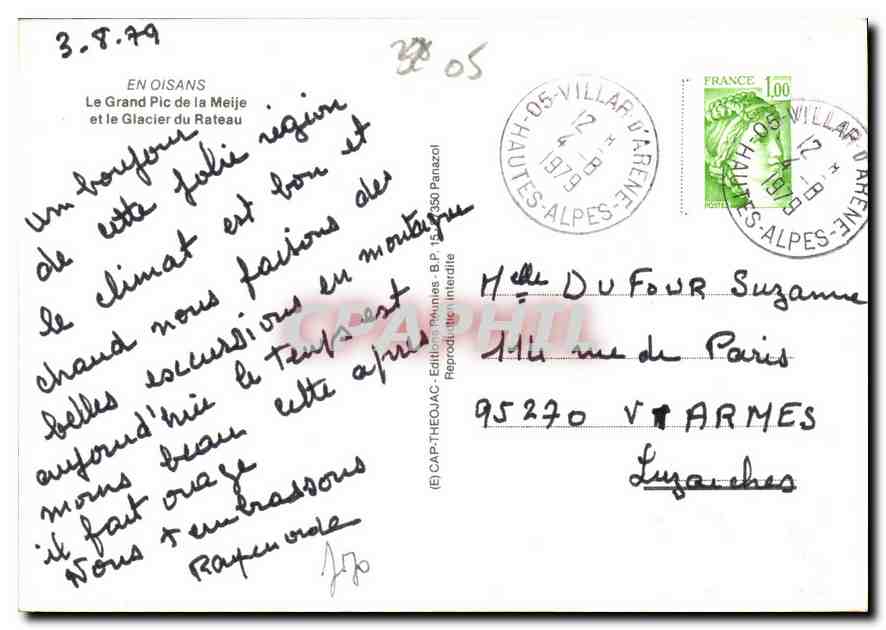 3.8.79
38 05
EN OISANS
Le Grand Pic de la Meije
et le Glacier du Rateau
um bonjour
de cette jolie région
le climat est bon et
chaud nous faisons des
belles escursions en montagne
aujourd'hui le temps est
moins beau cette après
il fait orage
Nous t embrassons
Raymonde
Jojo
(E) CAP-THEOJAC - Editions Réunies - B.P. 15 - 87350 Panazol
Reproduction interdite
CPAPHIL
05-VILLAR D'ARENE
12 H
4-8
1979
HAUTES-ALPES
FRANCE 1,00
POSTES
05-VILLAR D'ARENE
12 H
4-8
1979
HAUTES-ALPES
Melle DUFOUR Suzanne
114 rue de Paris
95270 VIARMES
Luzarches